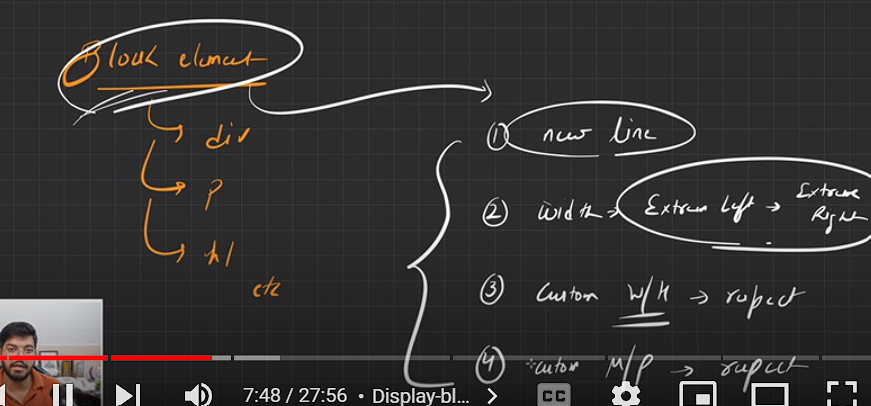 Block element
div
p
h1
etc
① new line
② width → Extreme Left → Extreme Right
③ Custom W/H → respect
④ Custom M/P → respect
7:48 / 27:56 • Display-bl...
CC